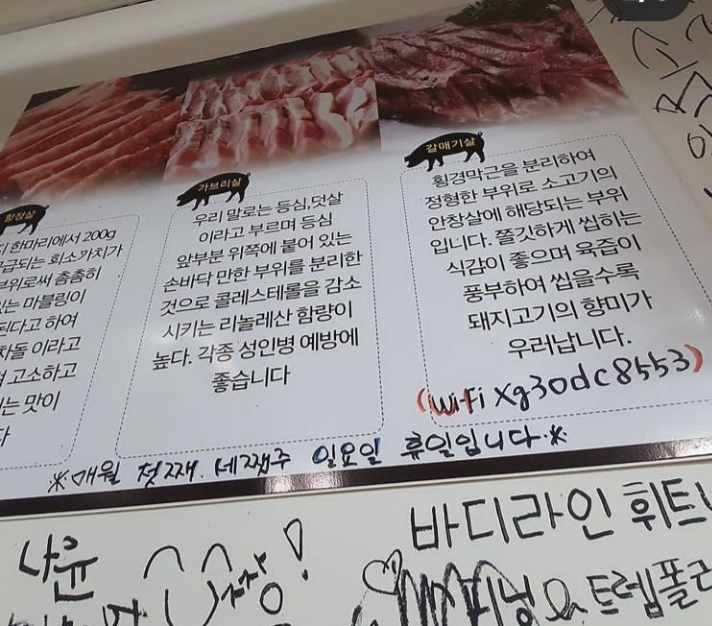 항정살
한마리에서 200g
공급되는 희소가치가
부위로써 촘촘히
있는 마블링이
된다고 하여
차돌 이라고
고소하고
는 맛이
다
가브리살
우리 말로는 등심,덧살
이라고 부르며 등심
앞부분 위쪽에 붙어 있는
손바닥 만한 부위를 분리한
것으로 콜레스테롤을 감소
시키는 리놀레산 함량이
높다. 각종 성인병 예방에
좋습니다
갈매기살
횡경막근을 분리하여
정형한 부위로 소고기의
안창살에 해당되는 부위
입니다. 쫄깃하게 씹히는
식감이 좋으며 육즙이
풍부하여 씹을수록
돼지고기의 향미가
우러납니다.
(wifi Xg30dc8553)
※매월 첫째. 세쨋주 일요일 휴일입니다.※
나윤
짱!
바디라인 휘트니
피닝 & 트램폴린